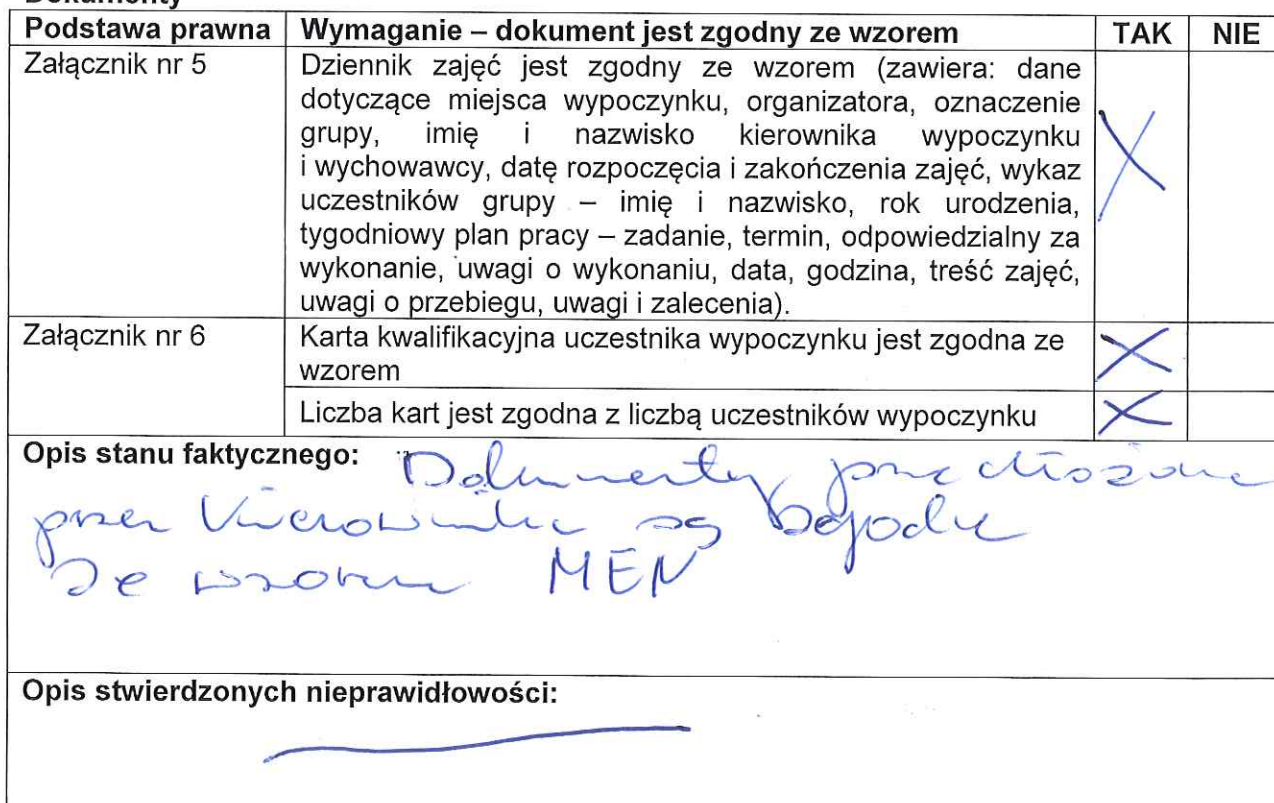 Dokumenty
Podstawa prawna Wymaganie – dokument jest zgodny ze wzorem TAK NIE
Załącznik nr 5 Dziennik zajęć jest zgodny ze wzorem (zawiera: dane
dotyczące miejsca wypoczynku, organizatora, oznaczenie
grupy, imię i nazwisko kierownika wypoczynku
i wychowawcy, datę rozpoczęcia i zakończenia zajęć, wykaz
uczestników grupy – imię i nazwisko, rok urodzenia,
tygodniowy plan pracy – zadanie, termin, odpowiedzialny za
wykonanie, uwagi o wykonaniu, data, godzina, treść zajęć,
uwagi o przebiegu, uwagi i zalecenia). X
Załącznik nr 6 Karta kwalifikacyjna uczestnika wypoczynku jest zgodna ze
wzorem X
Liczba kart jest zgodna z liczbą uczestników wypoczynku X
Opis stanu faktycznego: Dokumenty przedłożone
przez Kierownika są zgodne
ze wzorem MEN
Opis stwierdzonych nieprawidłowości: